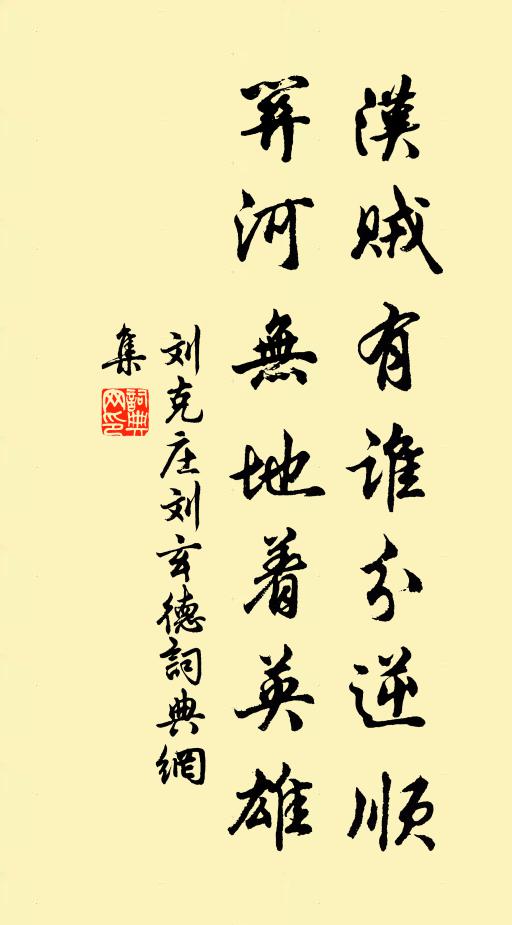 漢賊有誰分逆順
關河無地着英雄
刘克庄刘玄德詞典網
集
詞典网印